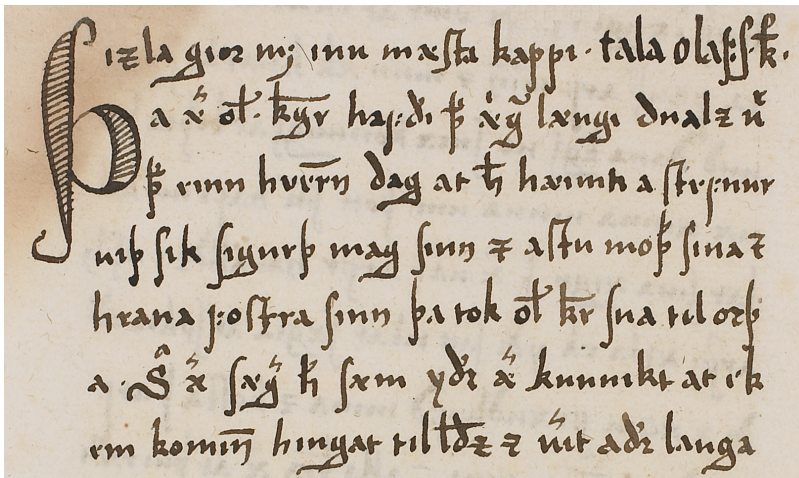 izla gior mꝫ inu mæſta kappi · tala Olaf ſ · k̅ ·
Þa æ͛ ol̅ · kg̅r hafði þ̅ æig̅ længi dualz u͛
þ̅ einn hvern̅ dag at h̅ hæimti a ſtefnur
uiþ ſik ſigurþ mag ſinn ⁊ aſtu moþ̅ ſina ⁊
hrana foſtra ſinn þa tok ol̅ kr̅ ſua til orþ
a · S͛ æ͛ ſæg͛ h̅ ſæm yðr æ͛ kunnikt at ek
em komin̅ hingat til l̅ðz ⁊ u͛it aðr langa